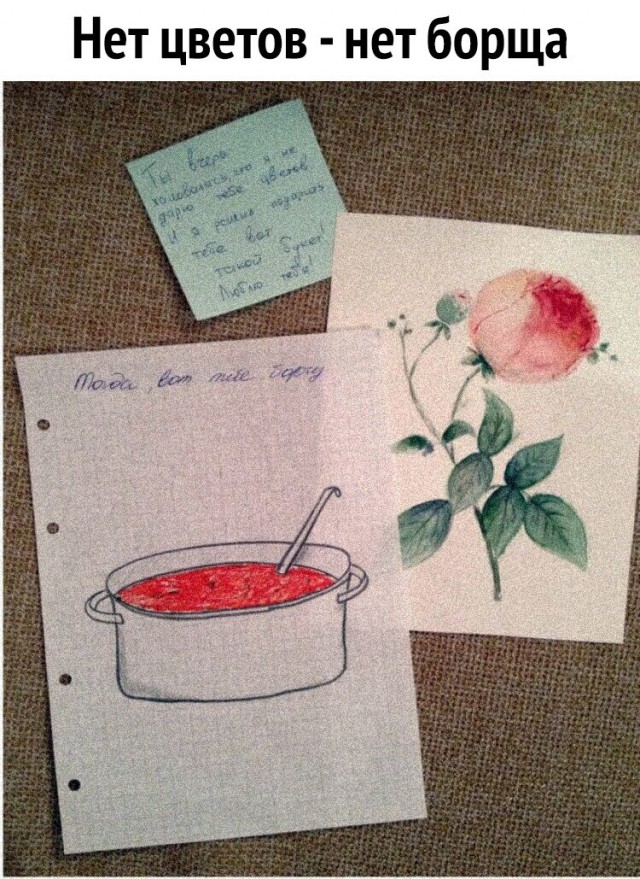 Нет цветов - нет борща
Ты вчера
жаловалась, что я не
дарю тебе цветов
И я решил подарить
тебе вот
такой букет!
Люблю тебя!
Тогда, вот тебе борщ